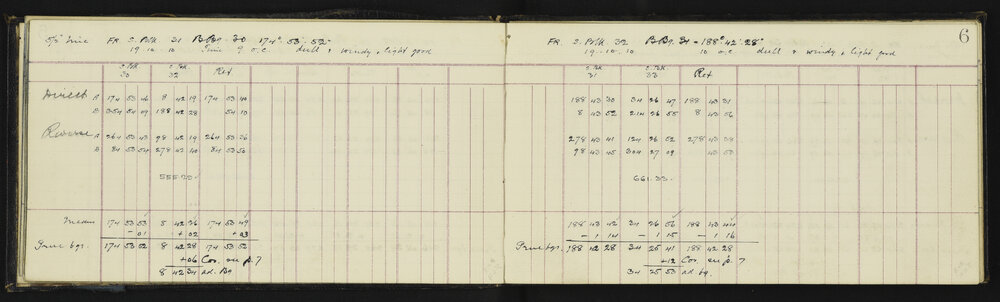 Fr. S. Peg 31 B.Bg. 30 174° 53' 52"
19.10.10 Time 9 o.c. dull & windy & light good
30 32 Ret
Direct A 174 53 46 8 42 19 174 53 40
B 354 54 09 188 42 28 54 10
Reverse A 264 53 43 98 42 19 264 53 36
B 84 53 54 278 43 10 84 53 50
555.23
Means 174 53 53 8 42 26 174 53 49
- 01 + 02 + 03
True bgs. 174 53 52 8 42 28 174 53 52
+06 Cor. see p. 7
8 42 34 ad. Bg
6
Fr. S. Peg 32 B.Bg. 31 = 188° 42' 28"
19.10.10 10 o.c. dull & windy & light good
31 33 Ret
188 43 30 34 26 47 188 43 31
8 43 52 214 26 55 8 43 56
278 43 41 124 26 52 278 43 38
98 43 45 304 27 09 43 53
661.33
188 43 42 34 26 56 188 43 44
- 1 14 - 1 15 - 1 16
True bgs. 188 42 28 34 25 41 188 42 28
+12 Cor. see p. 7
34 25 53 ad bg.